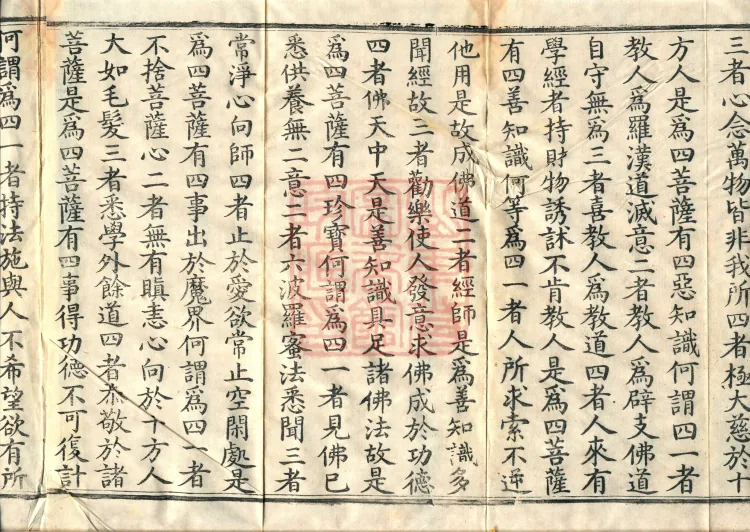 三者心念萬物皆非我所四者極大慈於十
方人是為四菩薩有四惡知識何謂四一者
教人為羅漢道滅意二者教人為辟支佛道
自守無為三者喜教人為教道四者人來有
學經者持財物誘訹不肯教人是為四菩薩
有四善知識何等為四一者人所求索不逆
他用是故成佛道二者經師是為善知識多
聞經故三者勸樂使人發意求佛成於功德
四者佛天中天是善知識具足諸佛法故是
為四菩薩有四珍寶何謂為四一者見佛已
悉供養無二意二者六波羅蜜法悉聞三者
常淨心向師四者止於愛欲常止空閑處是
為四菩薩有四事出於魔界何謂為四一者
不捨菩薩心二者無有瞋恚心向於十方人
大如毛髮三者悉學外餘道四者恭敬於諸
菩薩是為四菩薩有四事得功德不可復計
何謂為四一者持法施與人不希望欲有所